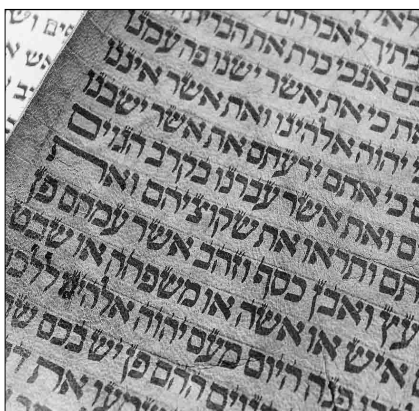 לאברהם
אנכי כרת את הברית
כי את אשר ישנו פה עמנו
יהוה אלהינו ואת אשר איננו
כי אתם ידעתם את אשר ישבנו
ואת אשר עברנו בקרב הגוים
ותראו את שקוציהם ואת
עץ ואבן כסף וזהב אשר עמהם פן
איש או אשה או משפחה או שבט
פנה היום מעם יהוה אלהינו
ההם פן יש בכם
את